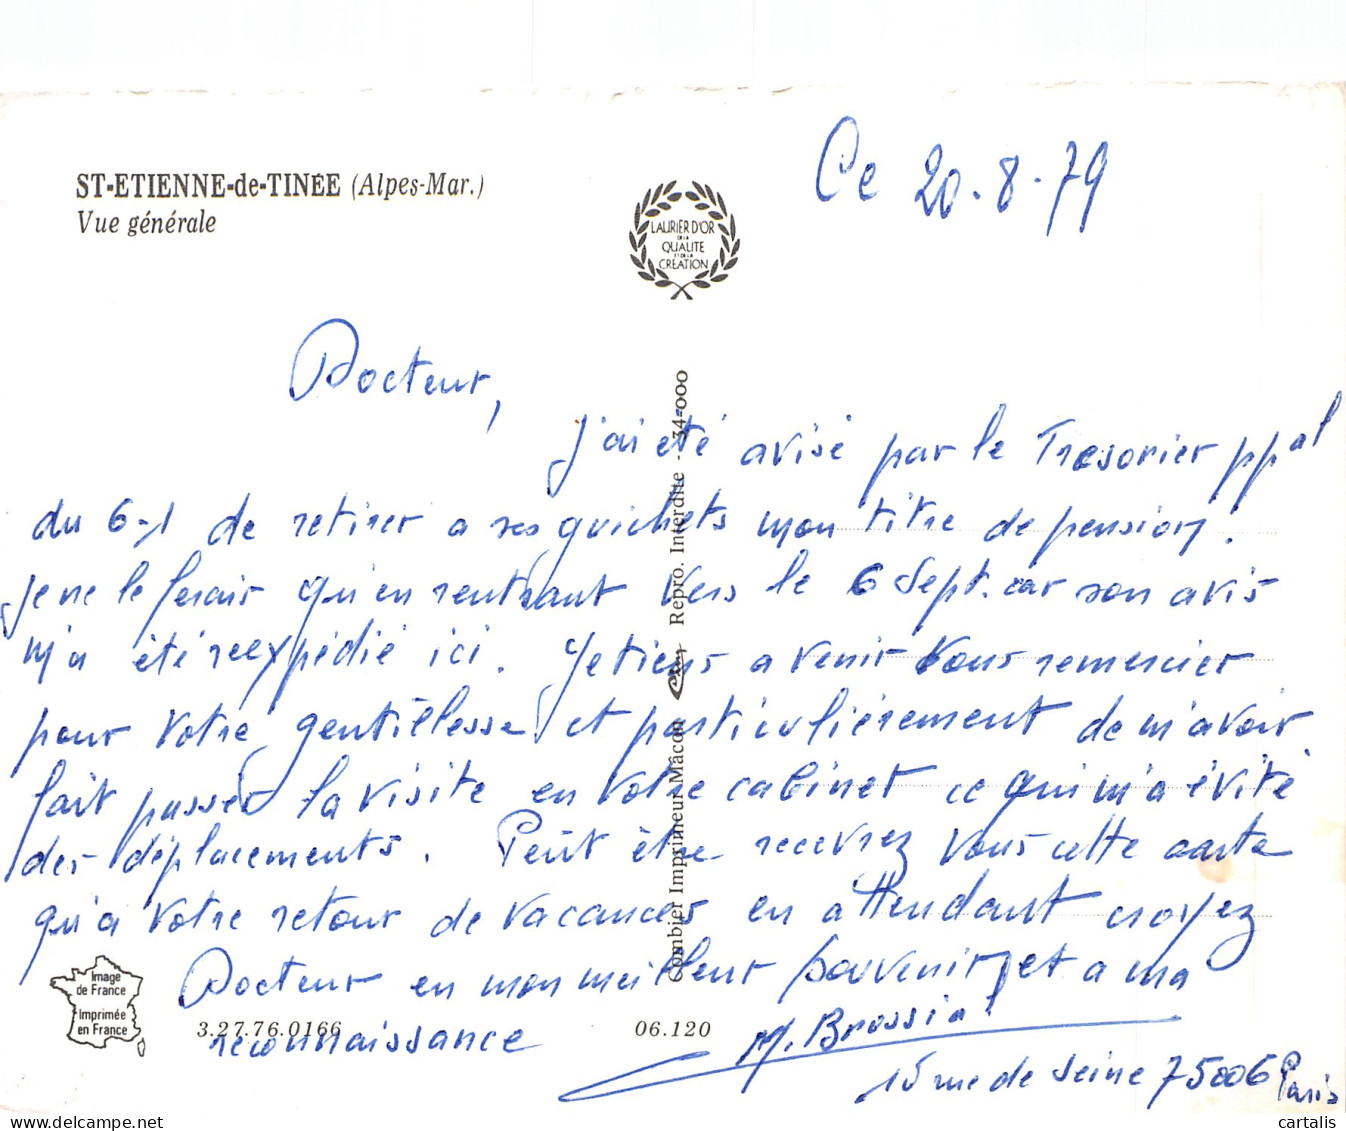 ST-ETIENNE-de-TINÉE (Alpes-Mar.)
Vue générale
LAURIER D'OR
DE LA
QUALITE
ET DE LA
CREATION
Ce 20-8-79
Docteur,
j'ai été avisé par le Tresorier ppal
du 6-1 de retirer a ses guichets mon titre de pension.
je ne le ferair qu'en rentrant vers le 6 Sept. car son avis
m'a été reexpédié ici. Je tiens a venir vous remercier
pour votre gentillesse et particulièrement de m'avoir
fait passer la visite en votre cabinet ce qui m'a évité
des déplacements. Peut être recevrez vous cette carte
qu'a votre retour de vacances en attendant croyez
Docteur en mon meilleur souvenir et a ma
reconnaissance
M. Brossia
15 rue de Seine 75006 Paris
Combier Imprimeur Mâcon Cim Repro. Interdite - 34-000
Image
de France
Imprimée
en France
3.27.76.0166
06.120
delcampe.net
cartalis